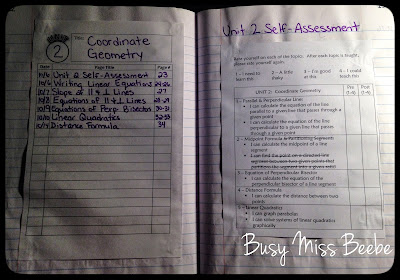 2
Title:
Coordinate
Geometry
Date
Page Title
Page #
10/6 Unit 2 Self-Assessment 23
10/6 Writing Linear Equations 24-26
10/7 Slope of || & ⊥ Lines 27
10/8 Equations of || & ⊥ Lines 28-29
10/9 Equations of Perp. Bisector 30-31
10/10 Linear Quadratics 32-33
10/14 Distance Formula 34
Unit 2 Self-Assessment
Rate yourself on each of the topics. After each topic is taught,
please rate yourself again.
1 - I need to learn this
2 - A little shaky
3 - I'm good at this
4 - I could teach this
UNIT 2: Coordinate Geometry
Pre (1-4)
Post (1-4)
1 - Parallel & Perpendicular Lines
• I can calculate the equation of the line
parallel to a given line that passes through a
given point
• I can calculate the equation of the line
perpendicular to a given line that passes
through a given point
2 - Midpoint Formula & Partitioning Segments
• I can calculate the midpoint of a line
segment
• I can find the point on a directed line
segment between two given points that
partitions the segment into a given ratio
3 - Equation of Perpendicular Bisector
• I can calculate the equation of the
perpendicular bisector of a line segment
4 - Distance Formula
• I can calculate the distance between two
points
5 - Linear Quadratics
• I can graph parabolas
• I can solve systems of linear quadratics
graphically
Busy Miss Beebe